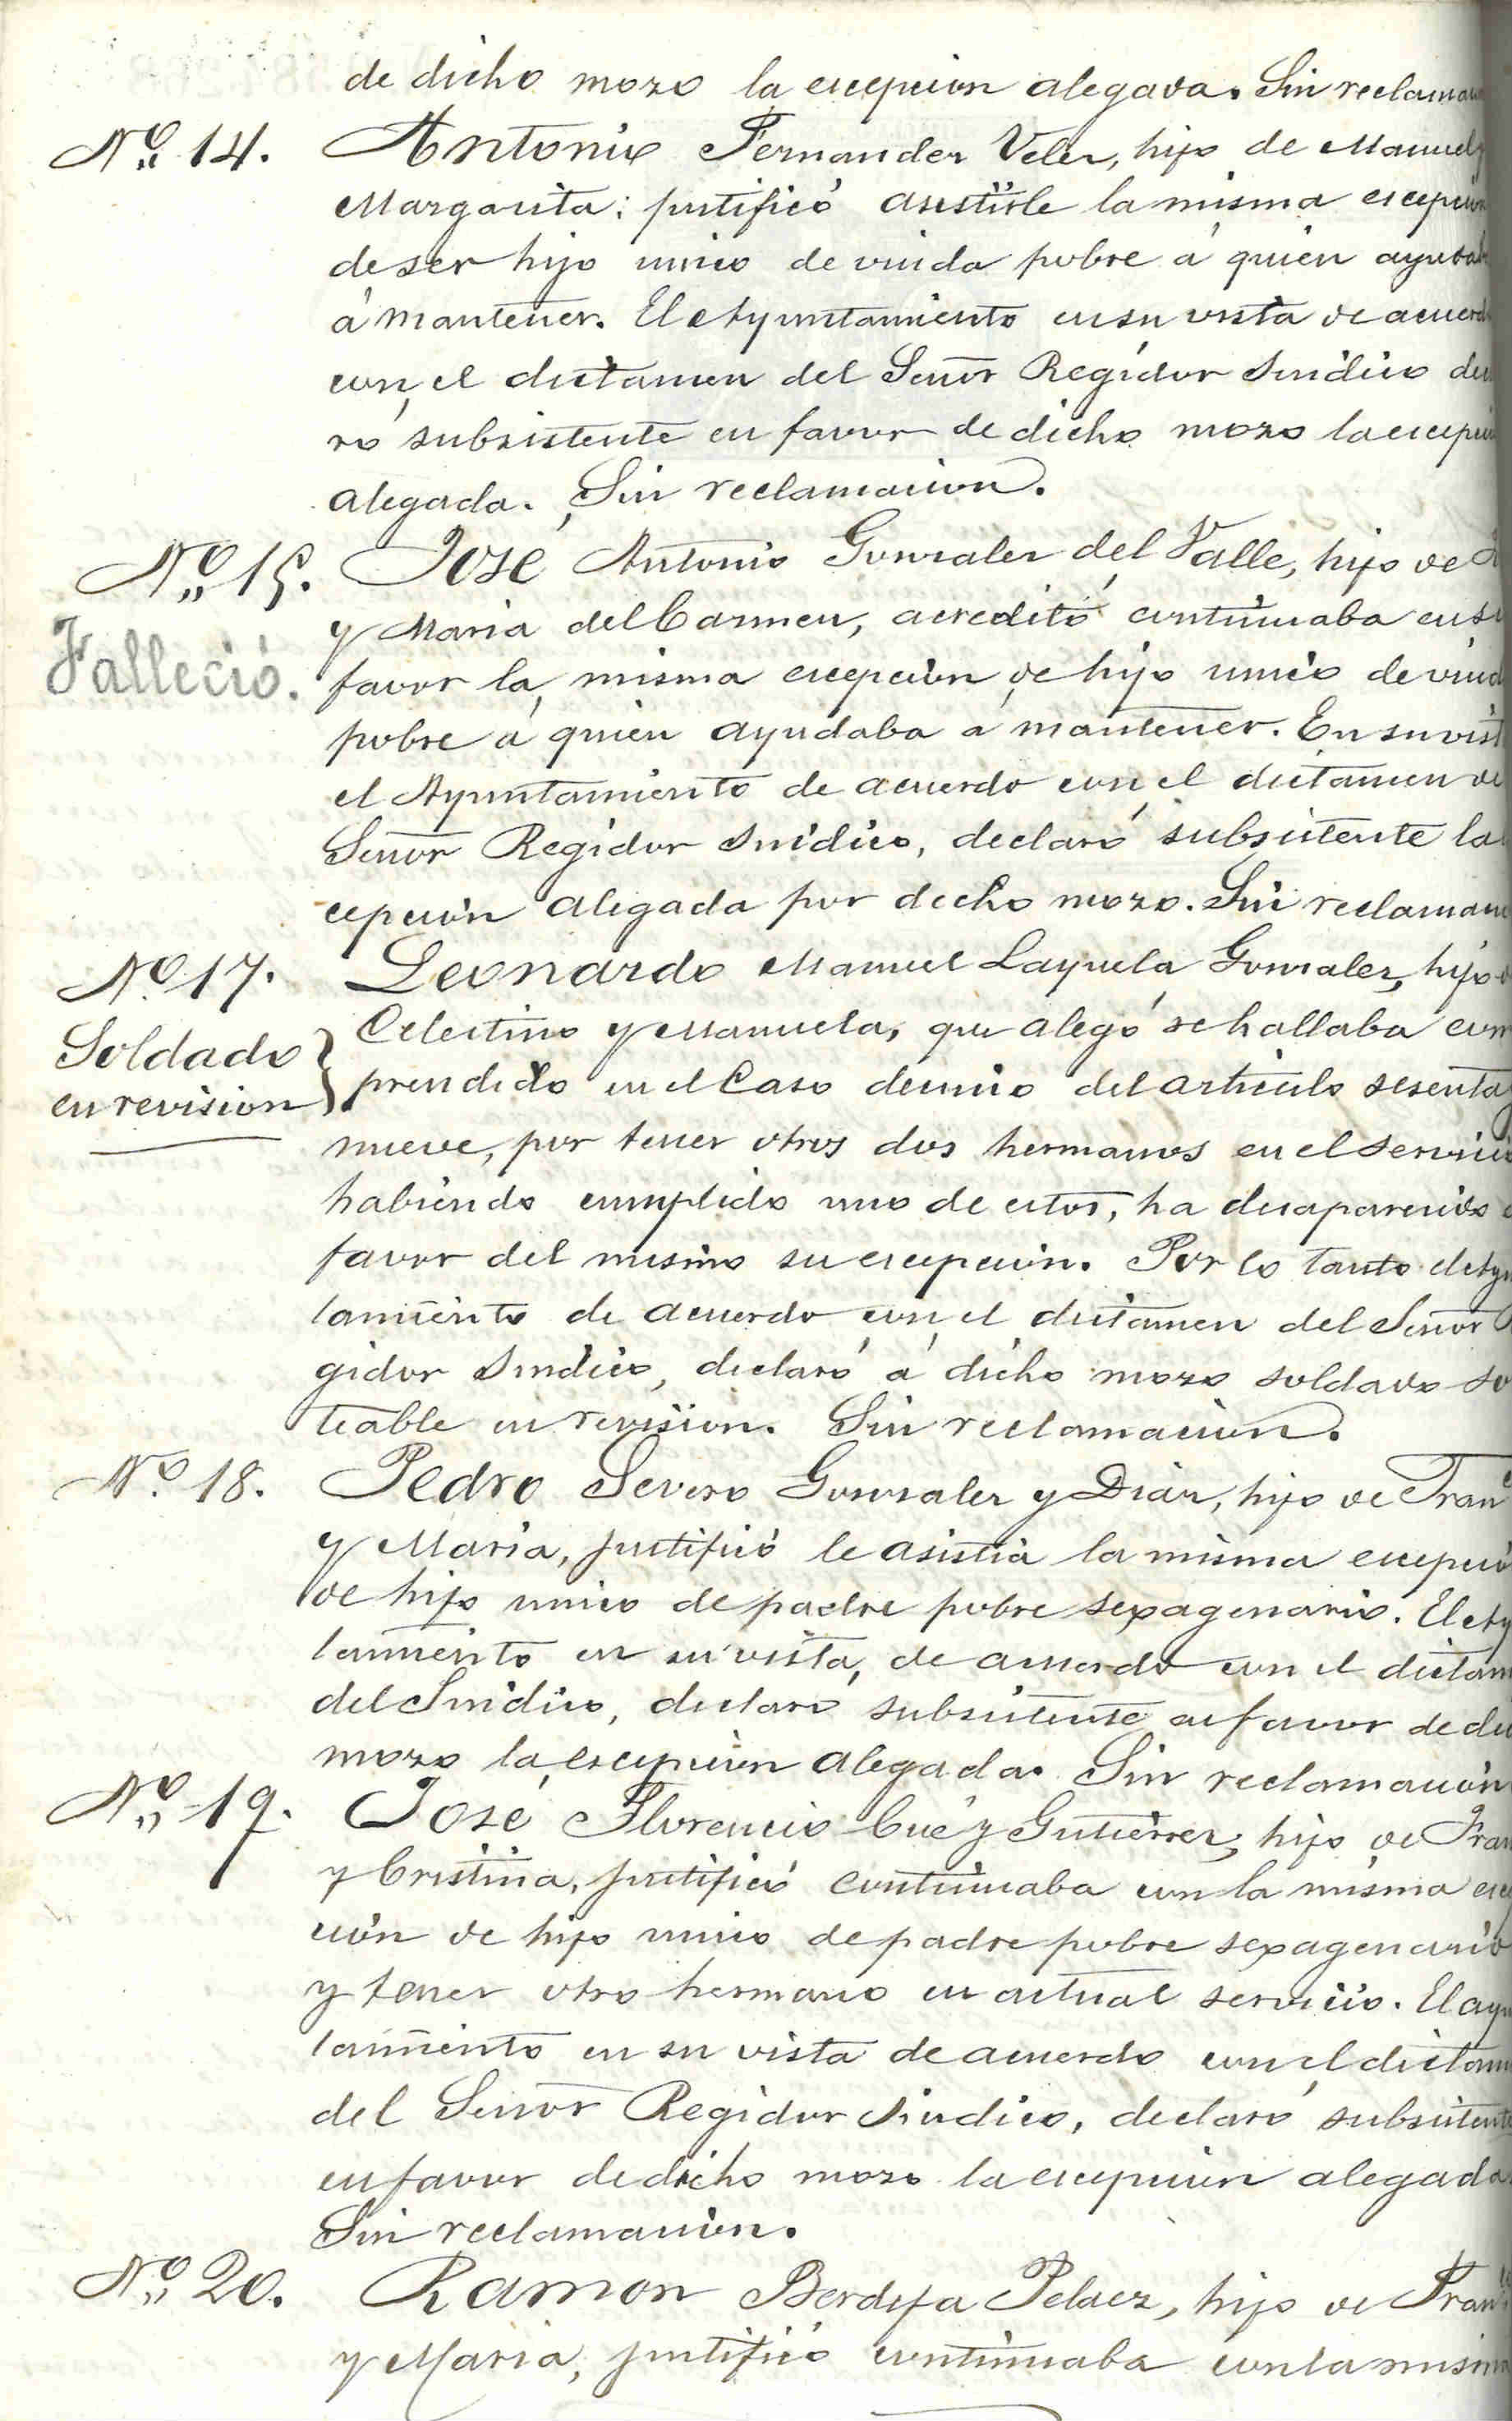 de dicho mozo la escepcion alegada. Sin reclamac
Nº 14. Antonio Fernandez Velez, hijo de Manuel y
Margarita: justificó asistirle la misma escepcion
de ser hijo unico de viuda pobre á quien ayudab
á mantener. El Ayuntamiento en su vista de acuerd
con el dictamen del Señor Regidor Sindico decla
ró subsistente en favor de dicho mozo la escepcio
alegada. Sin reclamacion.
Nº 15. José Antonio Gonzalez del Valle, hijo de
Falleció.
y Maria del Carmen, acreditó continuaba en su
favor la misma escepcion de hijo unico de viud
pobre á quien ayudaba á mantener. En su vist
el Ayuntamiento de acuerdo con el dictamen de
Señor Regidor Sindico, declaró subsistente la
cepcion alegada por dicho mozo. Sin reclamaci
Nº 17. Leonardo Manuel Layuela Gonzalez, hijo d
Soldado
en revision
Celestino y Manuela, que alegó se hallaba com
prendido en el Caso decimo del articulo sesenta y
nueve, por tener otros dos hermanos en el servicio
habiendo cumplido uno de estos, ha desaparecido e
favor del mismo su escepcion. Por lo tanto el Ayu
tamiento de acuerdo con el dictamen del Señor
gidor Sindico, declaró á dicho mozo soldado so
teable en revision. Sin reclamacion.
Nº 18. Pedro Severo Gonzalez y Diaz, hijo de Fran
y Maria, justificó le asistia la misma escepcio
de hijo unico de padre pobre sexagenario. El Ay
tamiento en su vista, de acuerdo con el dictam
del Sindico, declaró subsistente en favor de dic
mozo la escepcion alegada. Sin reclamacion
Nº 19. José Florencio Cué y Gutierrez, hijo de Fran
y Cristina, justificó continuaba con la misma esc
cion de hijo unico de padre pobre sexagenario
y tener otro hermano en actual servicio. El ayu
tamiento en su vista de acuerdo con el dictam
del Señor Regidor Sindico, declaró subsistente
en favor de dicho mozo la escepcion alegada
Sin reclamacion.
Nº 20. Ramon Berdeja Pelaez, hijo de Fran
y Maria, justificó continuaba con la misma